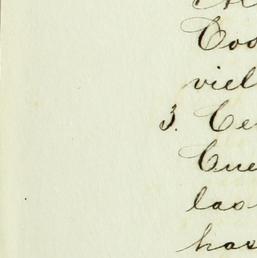 Coo
viel
3. Ce
Cue
las
has